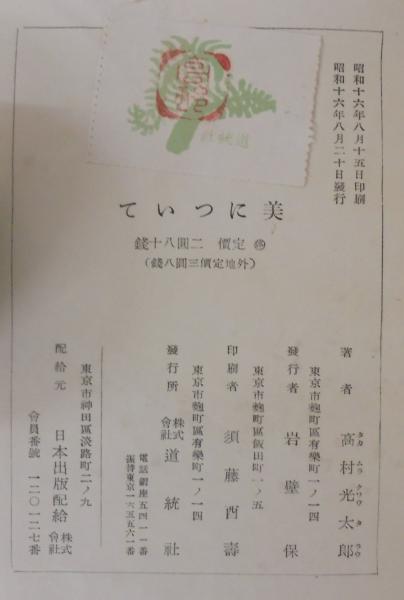 昭和十六年八月十五日印刷
昭和十六年八月二十日發行
道統社
美について
定價 二圓八十錢
(外地定價三圓八錢)
著者 高村光太郎
タカムラクワウタラウ
東京市麴町區有樂町一ノ一四
發行者 岩壁保
東京市麴町區飯田町一ノ五
印刷者 須藤酉壽
東京市麴町區有樂町一ノ一四
發行所 株式會社 道統社
電話銀座五四一一番
振替東京一六三五六一番
東京市神田區淡路町二ノ九
配給元 日本出版配給株式會社
會員番號 一二〇一二七番